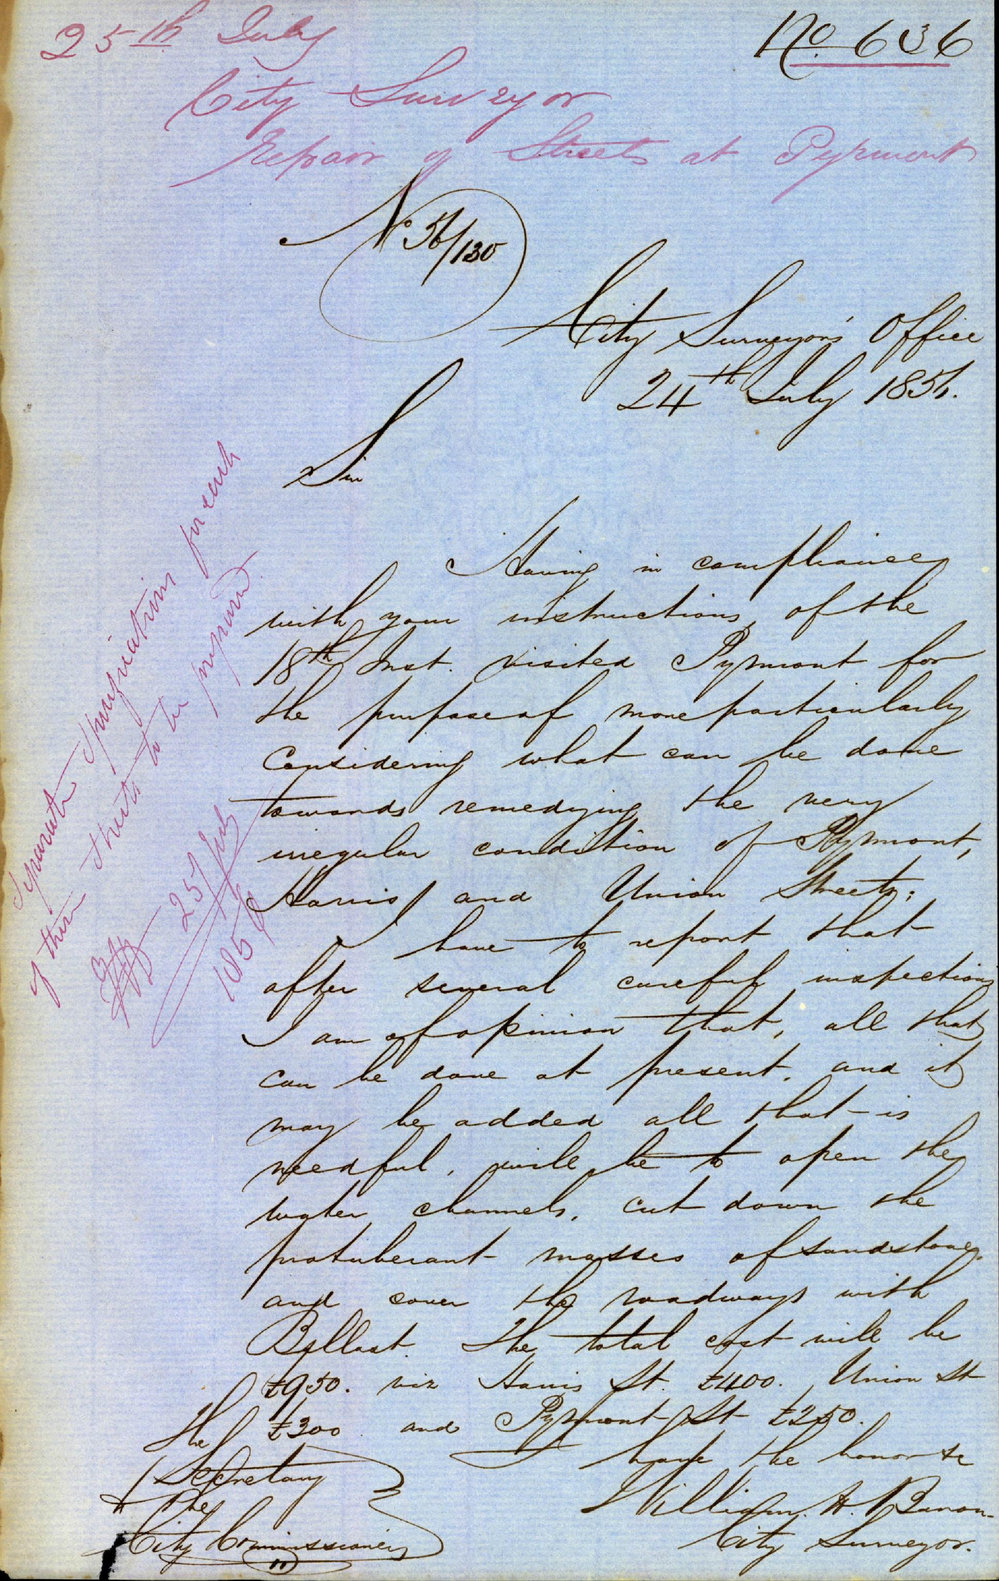 25th July
No. 636
City Surveyor
Repair of Streets at Pyrmont
No 56/130
City Surveyor's Office
24th July 1856.
Sir
Having in compliance
with your instructions of the
18th Inst. visited Pyrmont for
the purpose of more particularly
Considering what can be done
towards remedying the very
irregular condition of Pyrmont,
Harris and Union Streets;
I have to report that
after several careful inspections
I am of opinion that, all that
can be done at present, and it
may be added all that is
needful, will be to open the
water channels, cut down the
protuberant masses of sandstone,
and cover the roadways with
Ballast. The total cost will be
£950. viz Harris St. £400. Union St
£300 and Pyrmont St £250.
I have the honor &c
William H. 
City Surveyor.
The
Secretary
The
City Commissioners
Separate specification for each
of these streets to be prepared
25 July
1856